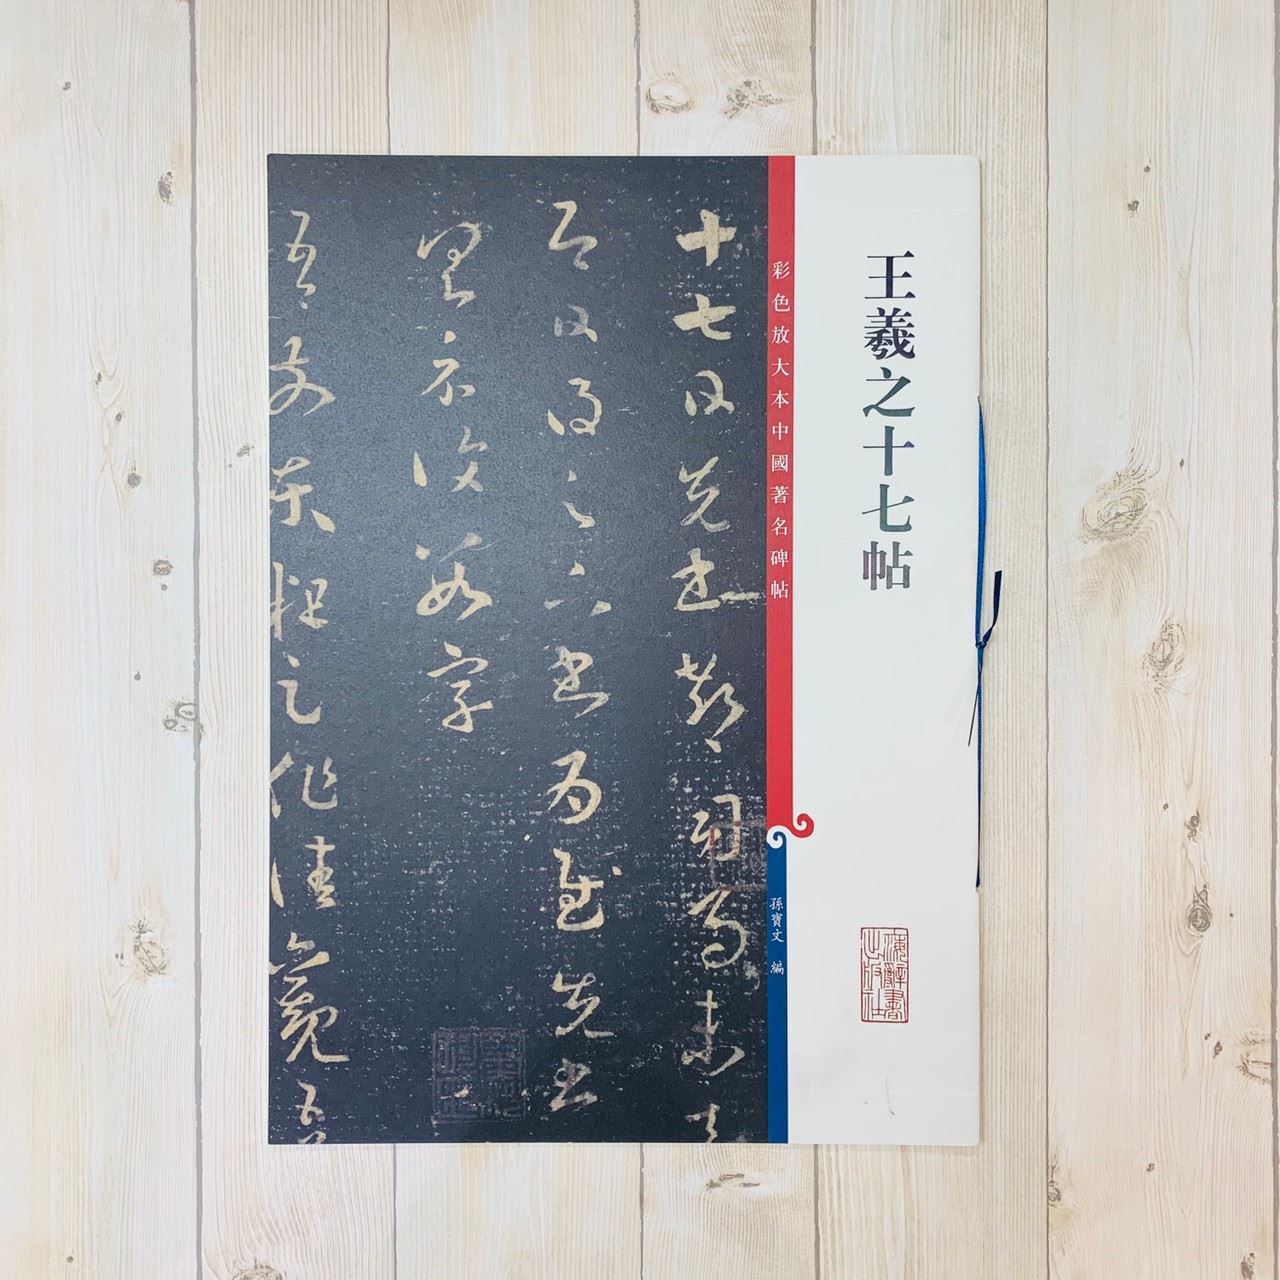 王羲之十七帖
上海辭書
出版社
彩色放大本中國著名碑帖
孫寶文 編
十七日先書郗司馬未去
即日得足下書為慰先書
以具示復數字
吾前東粗足作佳觀吾